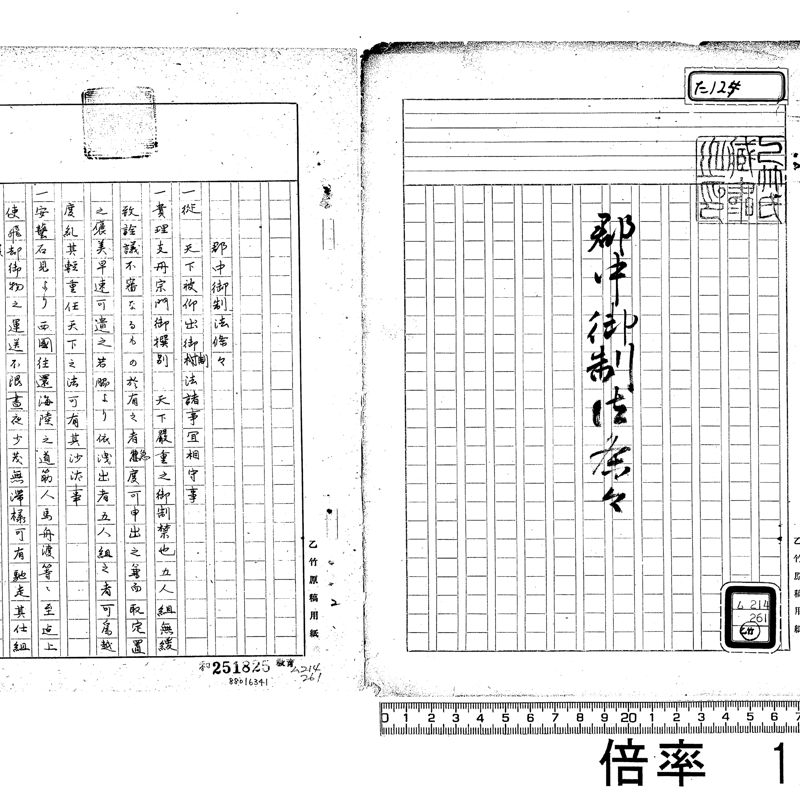 た124
郡中御制法条々
乙竹原稿用紙
ム 214
261
乙竹
郡中御制法條々
一従 天下被仰出御制法諸事冝相守事
一貴理支丹宗門御撰別 天下嚴重之御制禁也五人組無緩
致詮議不審なるもの於有之者 度可申出之 面取定置
之褒美早速可遣之若脇より依洩出者五人組之者可為越
度乱其軽重任天下之法可有其沙汰事
一安藝石見より西國往還海陸之道筋人馬舟渡等、至迄上
使飛却御物之運送不限晝夜少茂無滞様可有馳走其仕組
乙竹原稿用紙
2
251825
教育
ム214
261
88016341
0 1 2 3 4 5 6 7 8 9 20 1 2 3 4 5 6 7
倍率 1